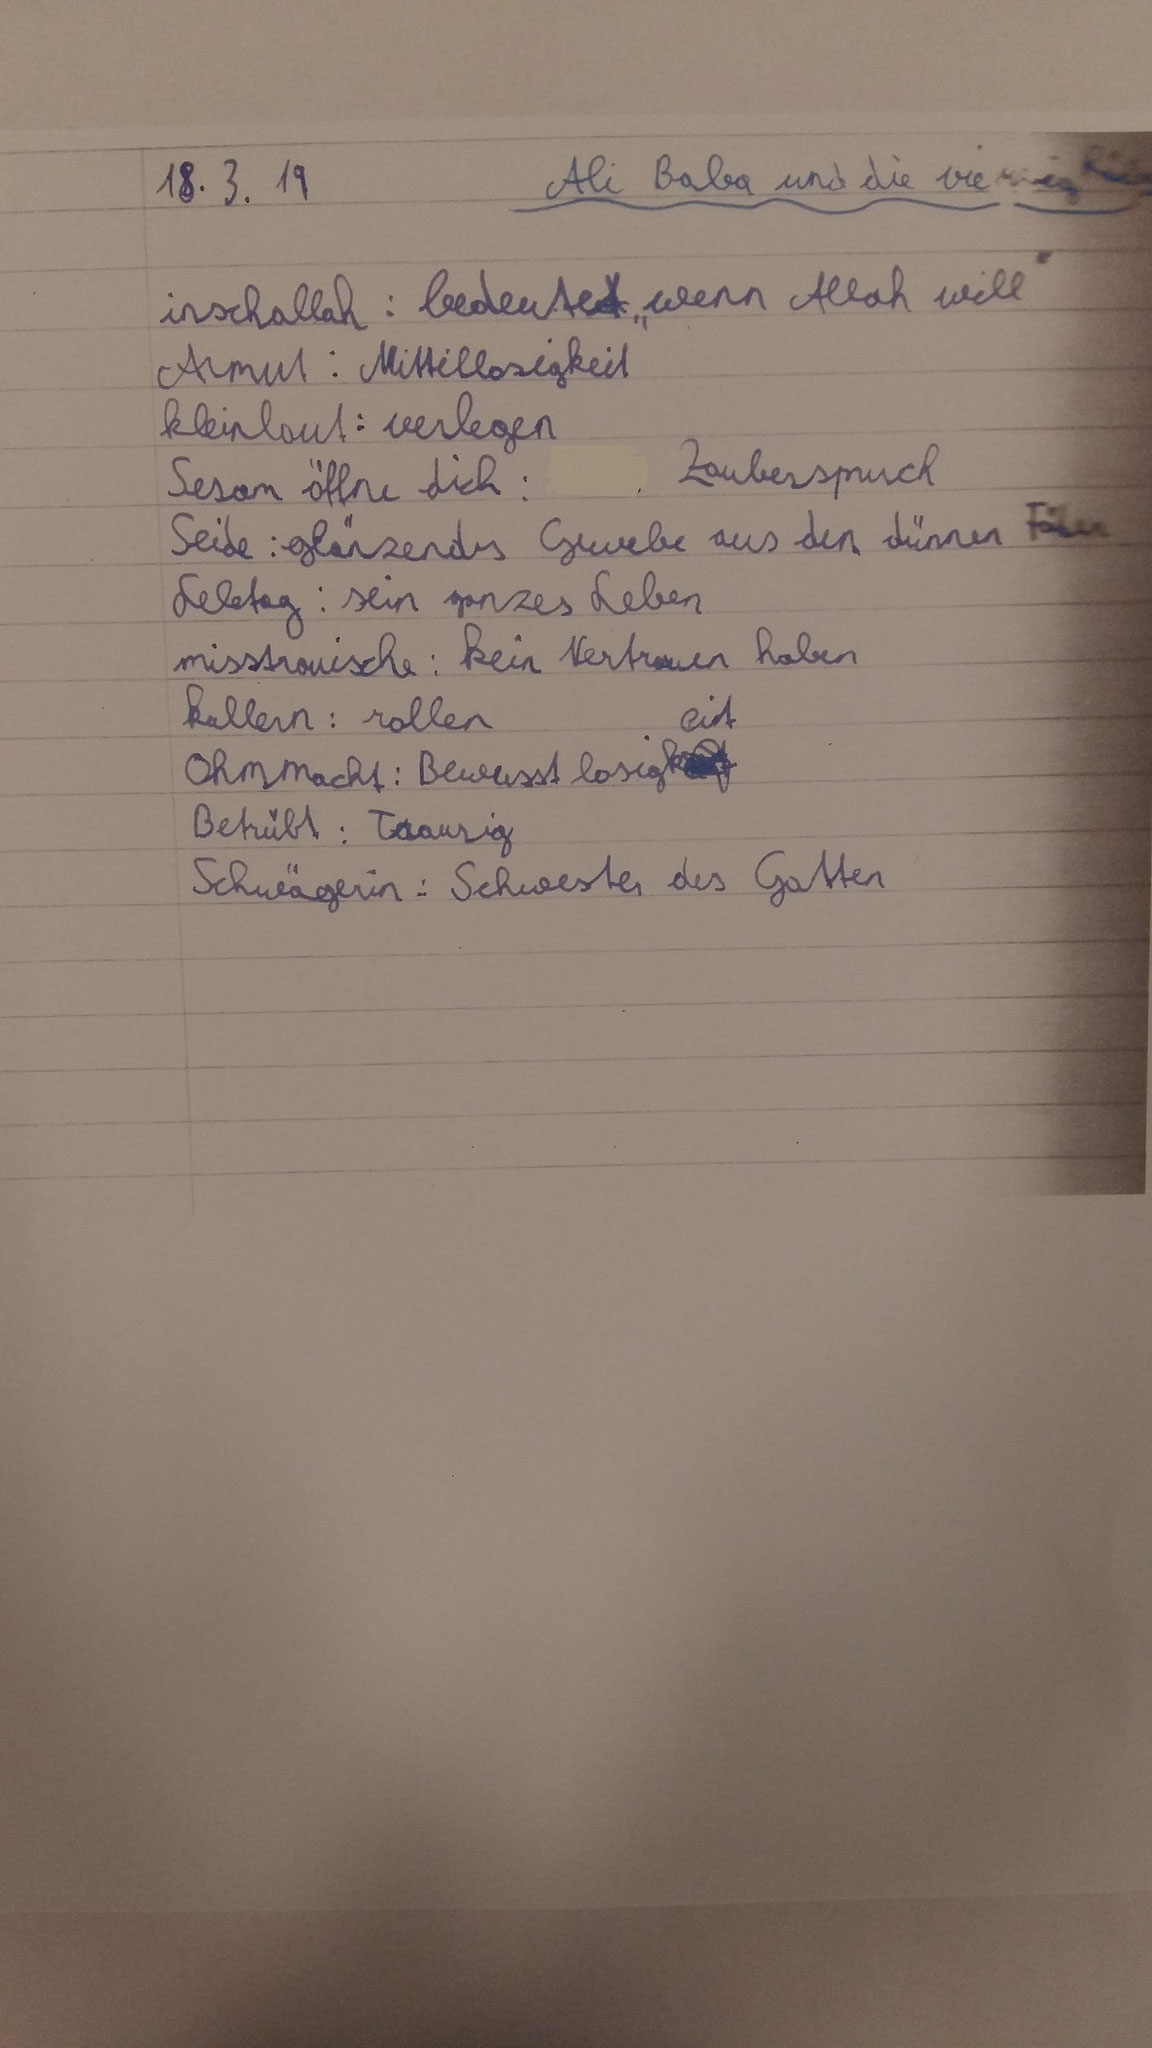 18. 3. 19 Ali Baba und die vierzig
inschallah : bedeutet „wenn Allah will"
Armut : Mittillosigkeit
kleinlaut : verlegen
Sesam öffne dich : Zauberspruch
Seide : glänzendes Gewebe aus den dünnen Fäden
Lebtag : sein ganzes Leben
misstrauische : kein Vertrauen haben
kullern : rollen
Ohnmacht : Bewusst losigkeit
Betrübt : Traurig
Schwägerin : Schwester des Gatten